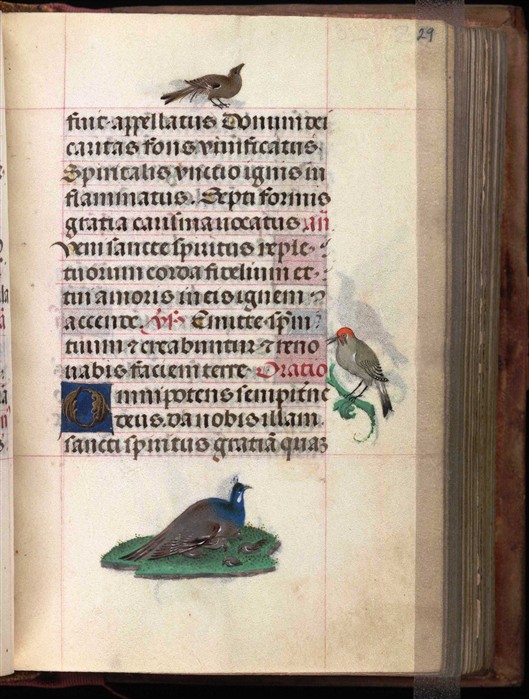 29
fuit appellatus Donum dei
caritas fons viuificatus
Spiritalis vnctio ignis in
flammatus. Septi formis
gratia carisma vocatus an̄
Veni sancte spiritus reple
tuorum corda fidelium et
tui amoris in eis ignem
accende. v̄s Emitte sp̄m
tuum ⁊ creabuntur ⁊ reno
uabis faciem terre Oratio
Omnipotens sempiterne
deus. da nobis illam
sancti spiritus gratiā quaz